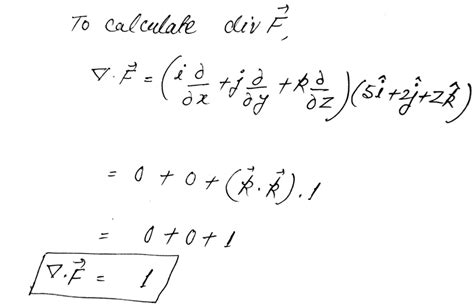 To calculate div F⃗,
∇·F⃗ = (i ∂/∂x + j ∂/∂y + k ∂/∂z)(5î+2ĵ+zk̂)
= 0 + 0 + (k⃗·k⃗).1
= 0+0+1
∇·F⃗ = 1